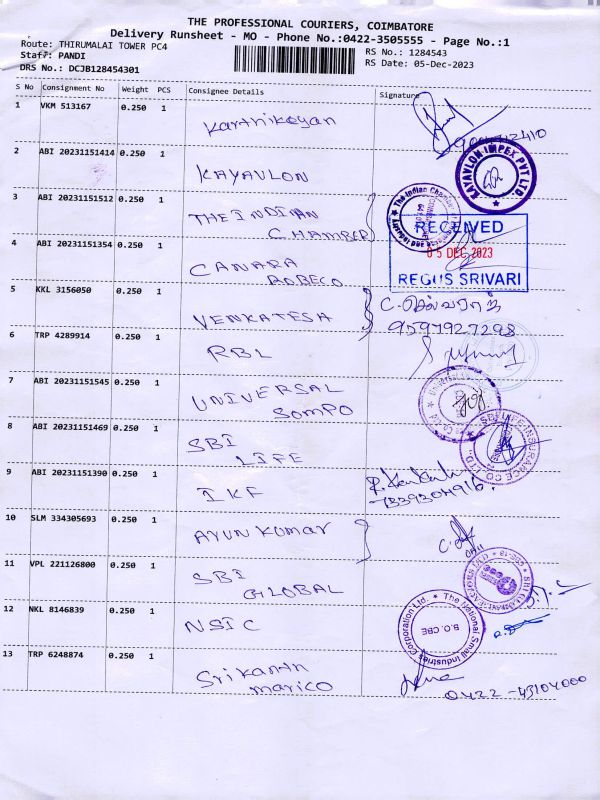 THE PROFESSIONAL COURIERS, COIMBATORE
Delivery Runsheet - MO - Phone No.:0422-3505555 - Page No.:1
Route: THIRUMALAI TOWER PC4
RS No.: 1284543
Staff: PANDI
RS Date: 05-Dec-2023
DRS No.: DCJB128454301
S No Consignment No Weight PCS Consignee Details Signature
1 VKM 513167 0.250 1 Karthikeyan
2 ABI 20231151414 0.250 1 KAYAVLON
KAYAVLON IMPEX PVT LTD.
3 ABI 20231151512 0.250 1 THE INDIAN
CHAMBER
The Indian Chamber of Commerce and Industry
RECEIVED
05 DEC 2023
REGUS SRIVARI
4 ABI 20231151354 0.250 1 CANARA
ROBECO
5 KKL 3156050 0.250 1 VENKATESA
C. செல்வராஜ்
9597927298
6 TRP 4289914 0.250 1 RBL
7 ABI 20231151545 0.250 1 UNIVERSAL
SOMPO
8 ABI 20231151469 0.250 1 SBI
LIFE
SBI LIFE INSURANCE CO. LTD.
9 ABI 20231151390 0.250 1 IKF
7339304916
10 SLM 334305693 0.250 1 Arun Kumar
11 VPL 221126800 0.250 1 SBI
GLOBAL
SBI GLOBAL FACTORS LTD
12 NKL 8146839 0.250 1 NSIC
The National Small Industries Corporation Ltd.
B.O. CBE
13 TRP 6248874 0.250 1 Srikanth
marico
0422-43104000